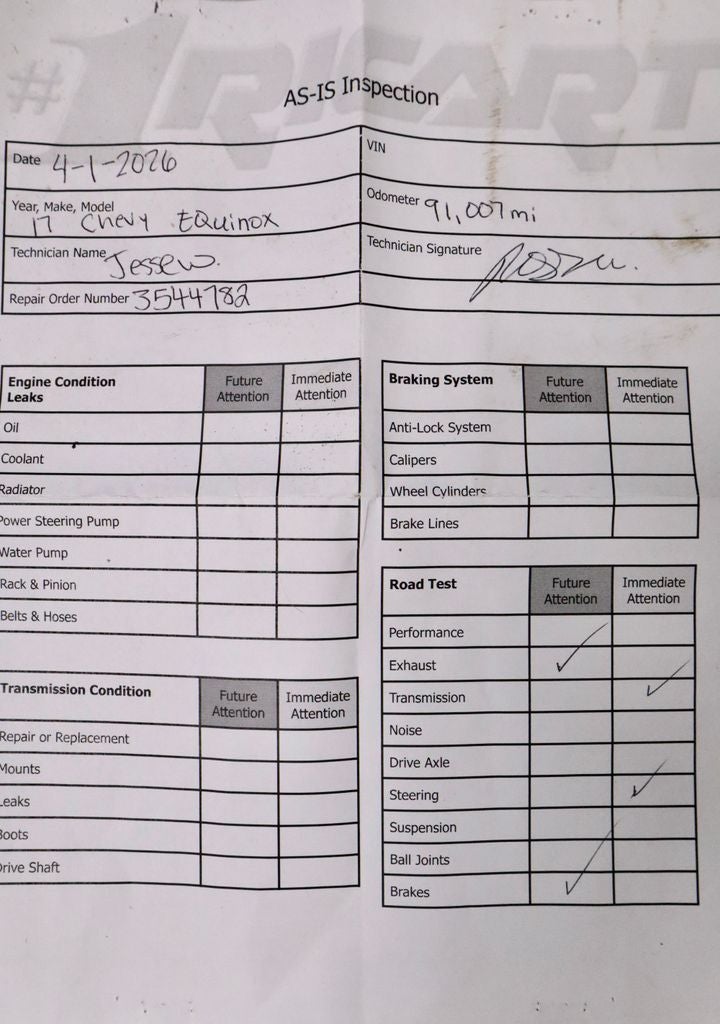 #1 RICART
AS-IS Inspection
Date 4-1-2026
VIN
Year, Make, Model
17 Chevy EQuinox
Odometer 91,007 mi
Technician Name Jesse W.
Technician Signature
Repair Order Number 3544782
Engine Condition
Leaks
Future
Attention
Immediate
Attention
Oil
Coolant
Radiator
Power Steering Pump
Water Pump
Rack & Pinion
Belts & Hoses
Transmission Condition
Future
Attention
Immediate
Attention
Repair or Replacement
Mounts
Leaks
Boots
Drive Shaft
Braking System
Future
Attention
Immediate
Attention
Anti-Lock System
Calipers
Wheel Cylinders
Brake Lines
Road Test
Future
Attention
Immediate
Attention
Performance
Exhaust ✓
Transmission ✓
Noise
Drive Axle
Steering ✓
Suspension
Ball Joints
Brakes ✓